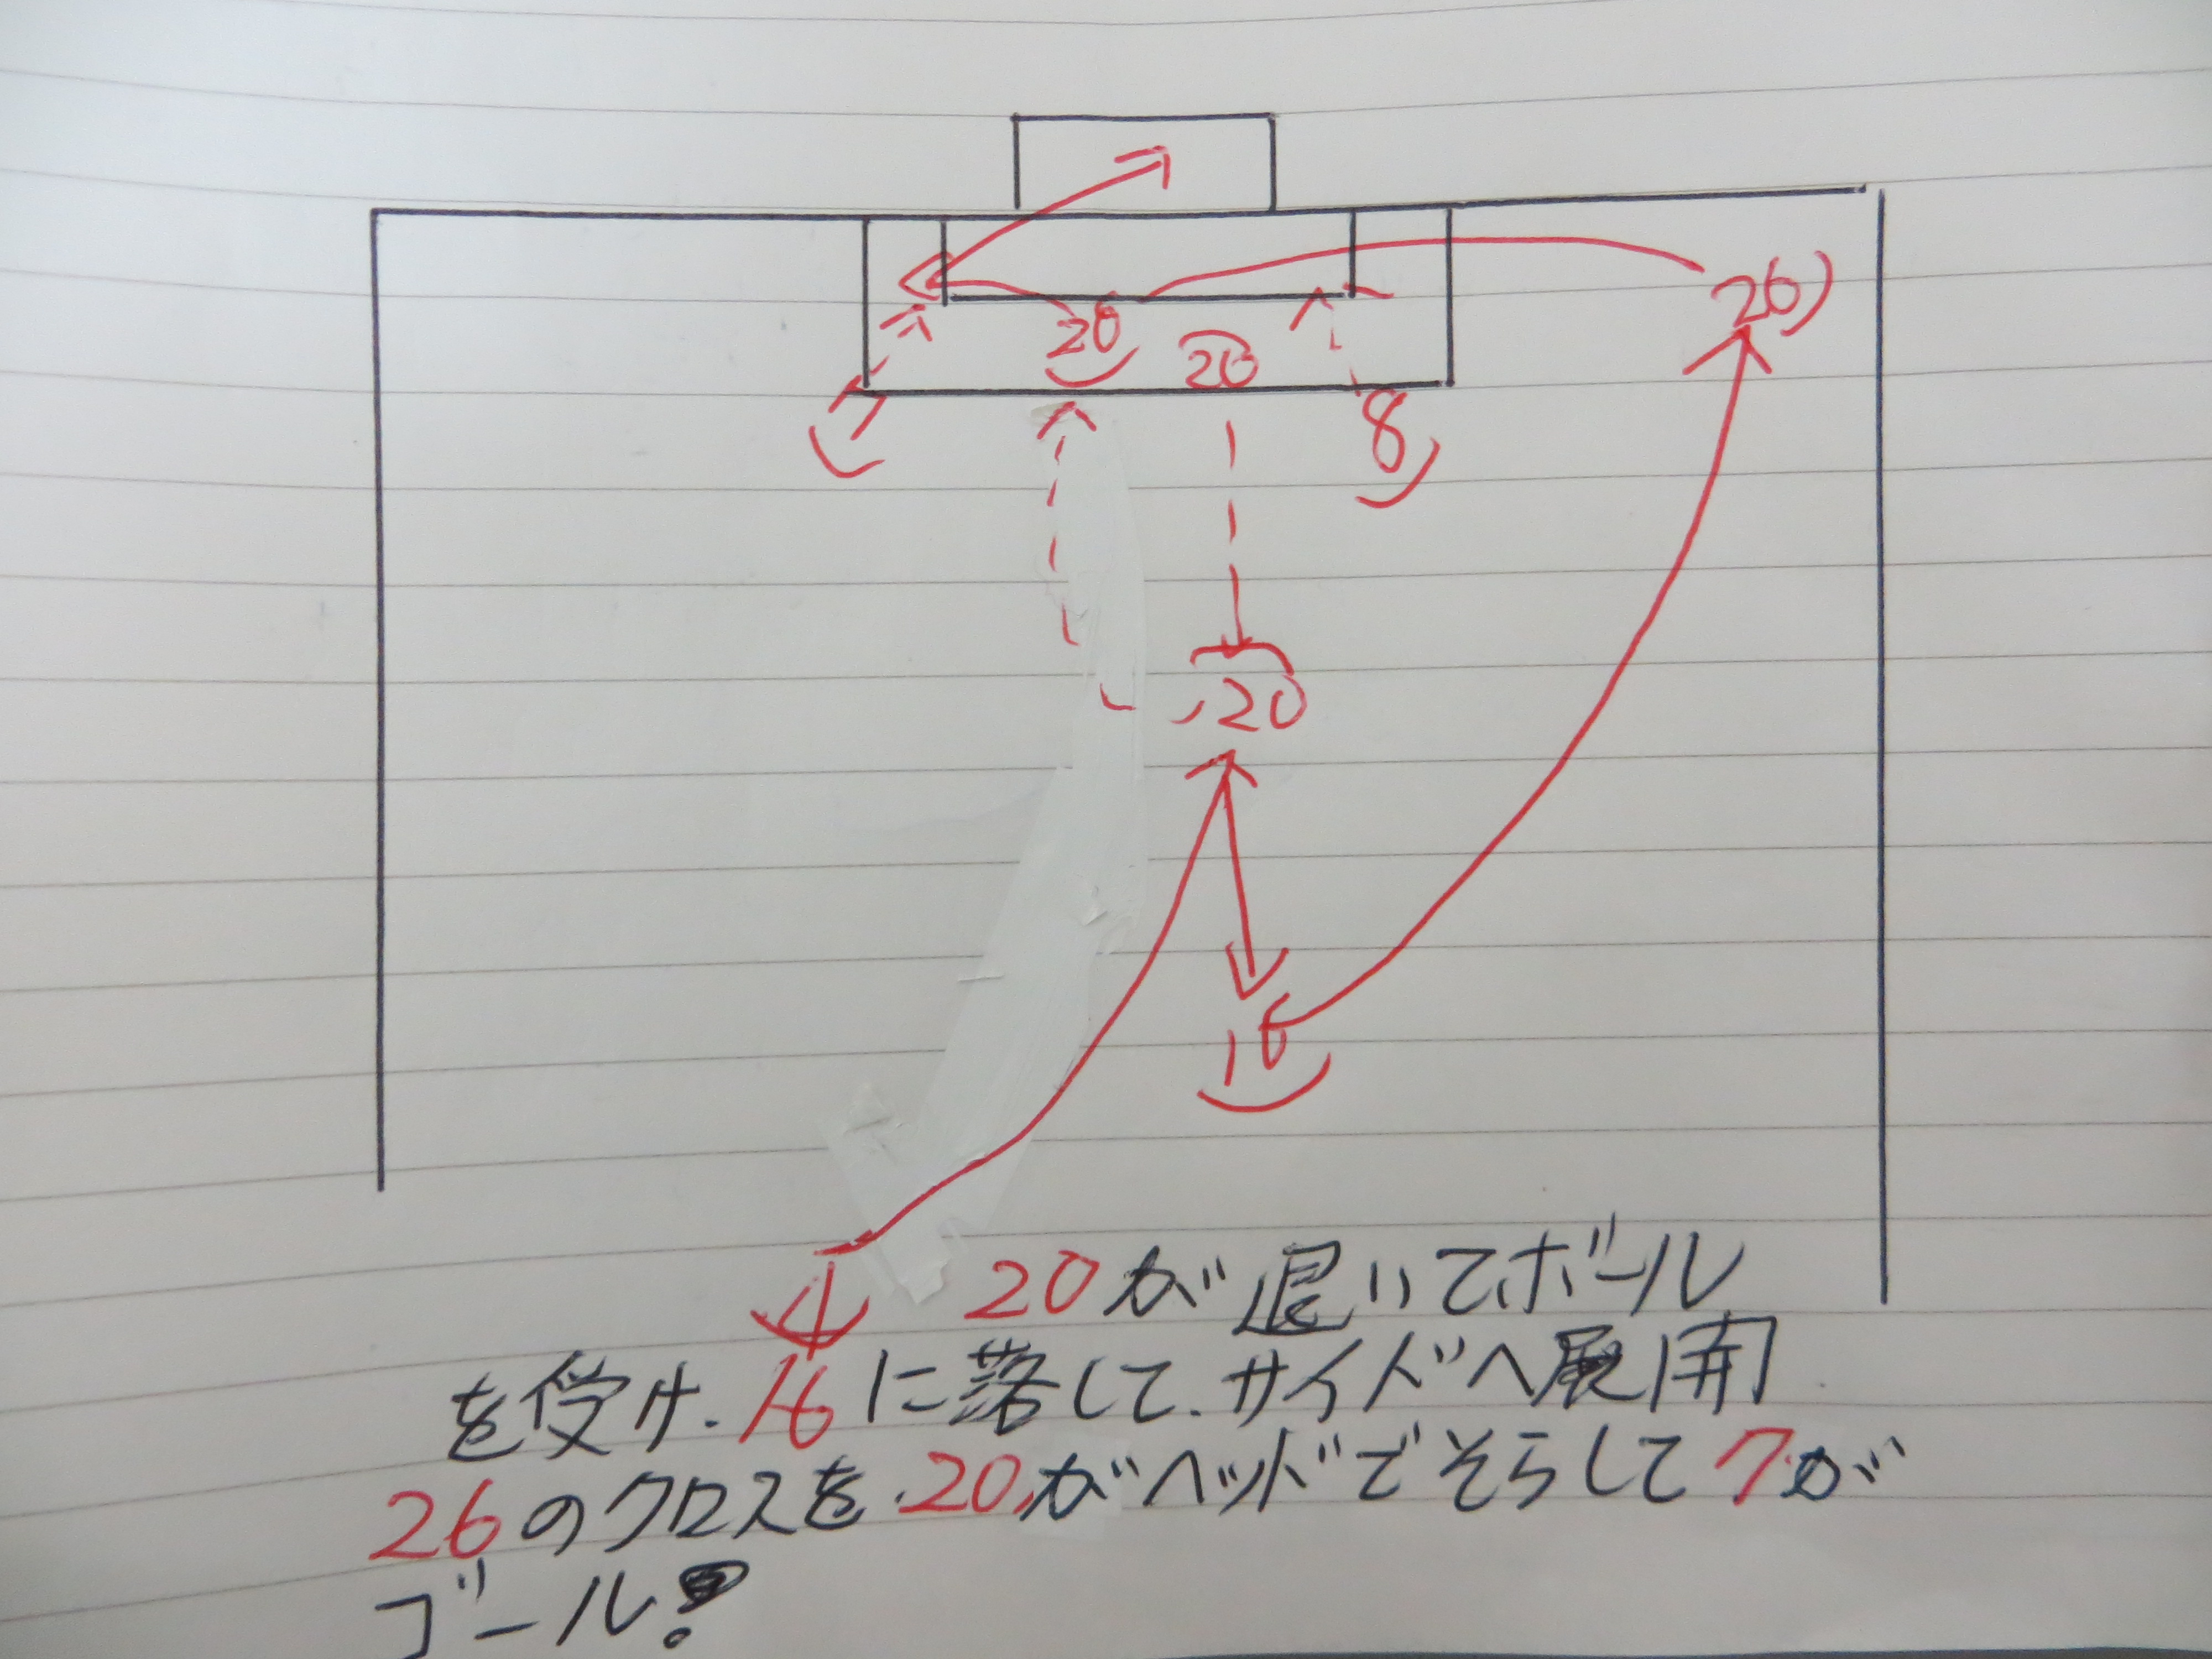 26
20
20
7
8
20
16
4
20が退いてボール
を受け、16に落して、サイドへ展開
26のクロスを20がヘッドでそらして7が
ゴール!